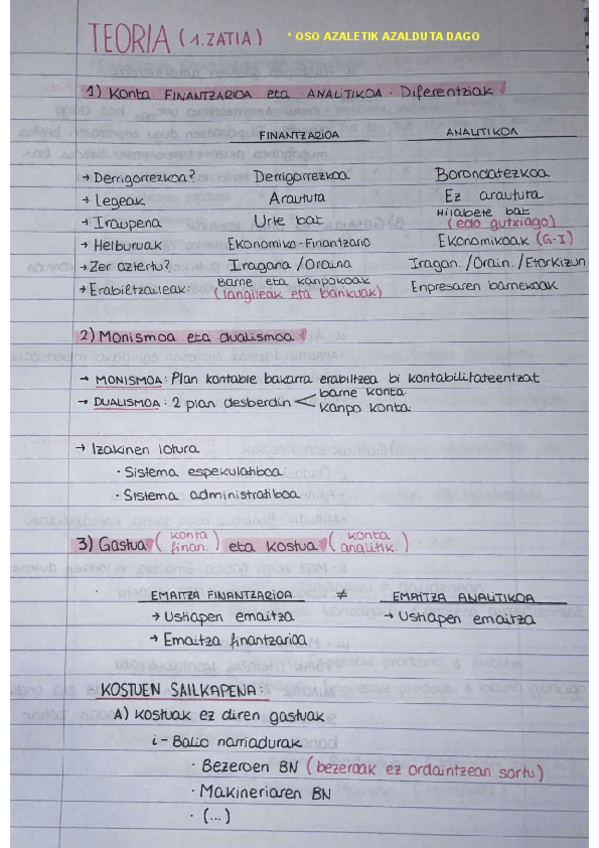 TEORIA (1. ZATIA) * OSO AZALETIK AZALDUTA DAGO
1) Konta FINANTZARIOA eta ANALITIKOA. Diferentziak
FINANTZARIOA ANALITIKOA
→ Derrigorrezkoa? Derrigorrezkoa Borondatezkoa
→ Legeak Araututa Ez araututa
→ Iraupena Urte bat Hilabete bat (edo gutxiago)
→ Helburuak Ekonomiko-Finantzario Ekonomikoak (G-I)
→ Zer aztertu? Iragana / Oraina Iragan. / Orain. / Etorkizun
→ Erabiltzaileak: Barne eta kanpokoak (langileak eta bankuak) Enpresaren barnekoak
2) Monismoa eta dualismoa
→ MONISMOA: Plan kontable bakarra erabiltzea bi kontabilitateentzat
→ DUALISMOA: 2 plan desberdin < barne konta.
kanpo konta.
→ Izakinen lotura
· Sistema espekulatiboa
· Sistema administratiboa
3) Gastua (konta finan.) eta kostua (konta analitik.)
EMAITZA FINANTZARIOA ≠ EMAITZA ANALITIKOA
→ Ustiapen emaitza → Ustiapen emaitza
→ Emaitza finantzarioa
· KOSTUEN SAILKAPENA:
A) Kostuak ez diren gastuak
i- Balio narriadurak
· Bezeroen BN (bezeroak ez ordaintzean sortu)
· Makineriaren BN
· (...)